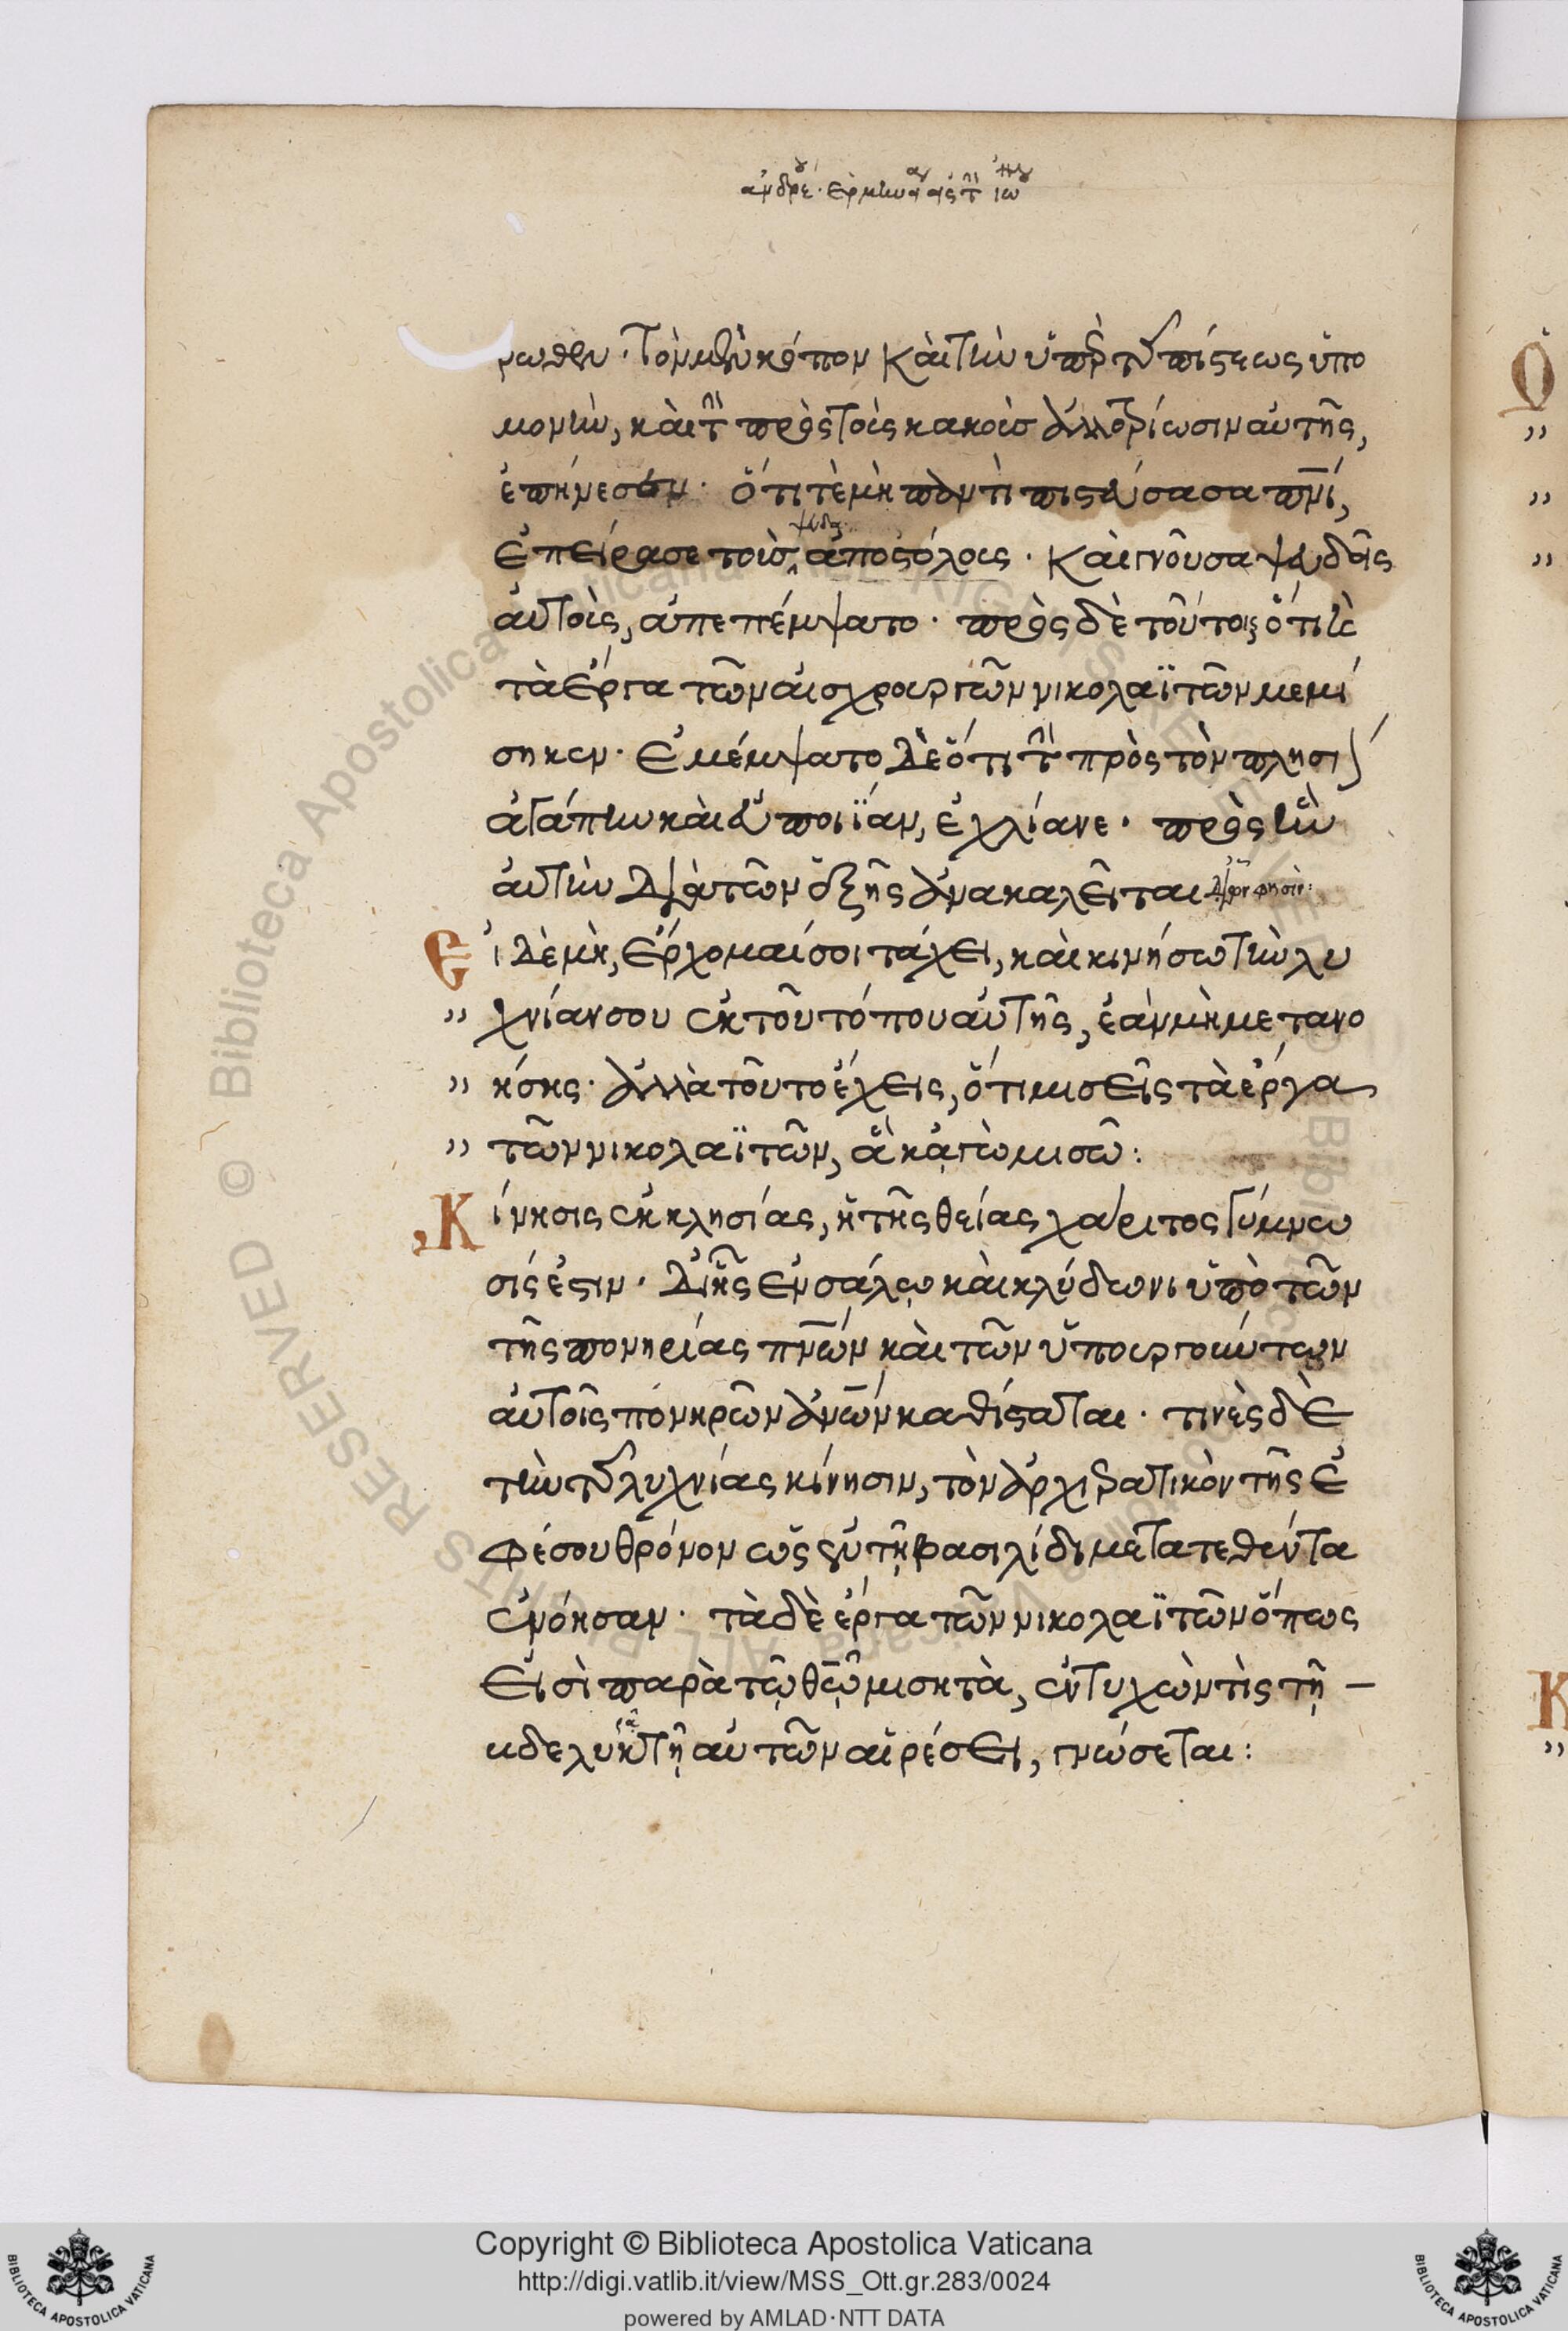 ρωθεν· τὸν μὲν κόπον καὶ τὴν ὑπὲρ τῆς πίστεως ὑπο
μονὴν, καὶ τὴν πρὸς τοὺς κακοὺς ἀλλοτρίωσιν αὐτῆς,
ἐπήνεσεν· ὅτι τὲ μὴ παντὶ πιστεύσασα πνι,
ἐπείρασε τοὺς ψευδαποστόλους· καὶ γνοῦσα ψευδεῖς
αὐτοὺς, ἀπεπέμψατο· πρὸς δὲ τούτοις ὅτι καὶ
τὰ ἔργα τῶν αἰσχρουργῶν νικολαϊτῶν μεμί
σηκεν· ἐμέμψατο δὲ ὅτι τὴν πρὸς τὸν πλησίον
ἀγάπην καὶ εὐποιΐαν, ἐχλίανε· πρὸς ἣν
αὐτὴν διὰ τῶν ἑξῆς ἀνακαλεῖται
Εἰ δὲ μὴ, ἔρχομαί σοι τάχει, καὶ κινήσω τὴν λυ
" χνίαν σου ἐκ τοῦ τόπου αὐτῆς, ἐὰν μὴ μετανο
" ήσης· ἀλλὰ τοῦτο ἔχεις, ὅτι μισεῖς τὰ ἔργα
" τῶν νικολαϊτῶν, ἃ κἀγὼ μισῶ:
Κίνησις ἐκκλησίας, ἡ τῆς θείας χάριτος γύμνω
σίς ἐστιν· δι' ἧς ἐν σάλῳ καὶ κλύδωνι ὑπὸ τῶν
τῆς πονηρίας πνων καὶ τῶν ὑπουργούντων
αὐτοῖς πονηρῶν ἀνων καθίσταται· τινὲς δὲ
τὴν τῆς λυχνίας κίνησιν, τὸν ἀρχιερατικὸν τῆς ἐ
φέσου θρόνον ὡς ἐν τῇ βασιλίδι μετατεθέντα
ἐνόησαν· τὰ δὲ ἔργα τῶν νικολαϊτῶν ὅπως
εἰσὶ παρὰ τῷ θῷ μισητὰ, ἐντυχὼν τὶς τῇ
βδελυκτῇ αὐτῶν αἱρέσει, γνώσεται:
Copyright © Biblioteca Apostolica Vaticana
http://digi.vatlib.it/view/MSS_Ott.gr.283/0024
powered by AMLAD·NTT DATA